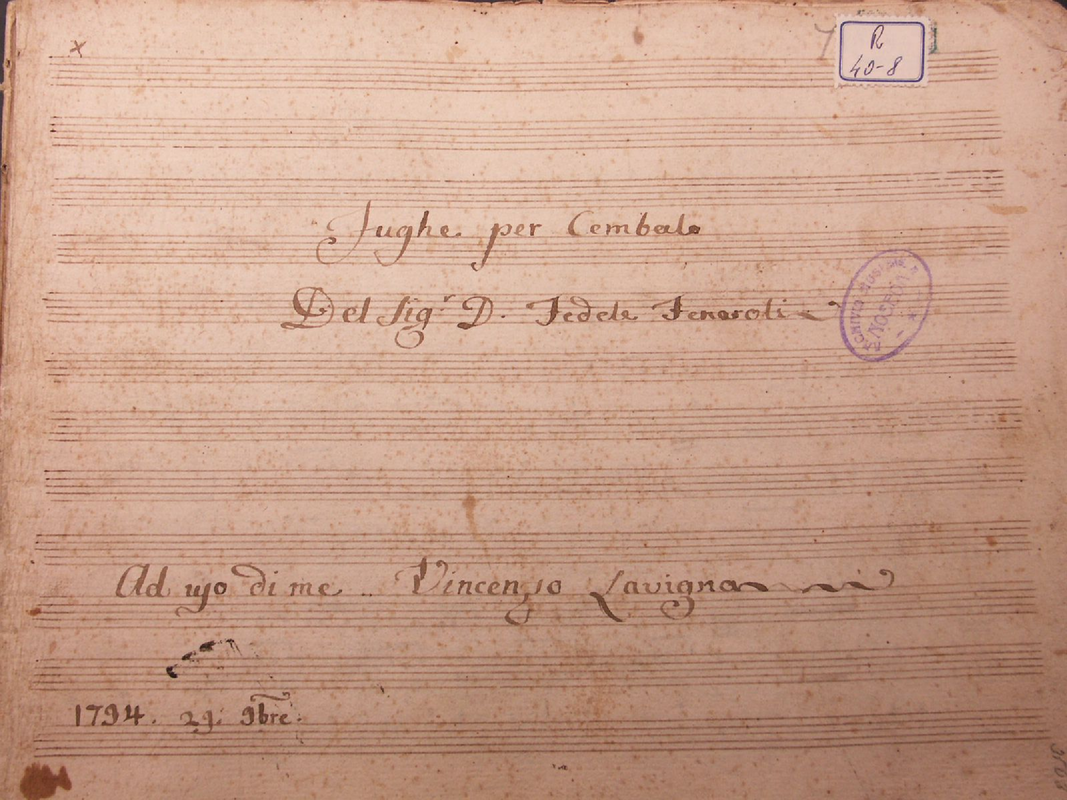 R
40-8
Fughe per Cembalo
Del Sig.r D. Fedele Fenaroli
ARCHIVIO
NOSEDA
Ad uso di me .. Vincenzo Lavigna
1794. 29. 9bre.